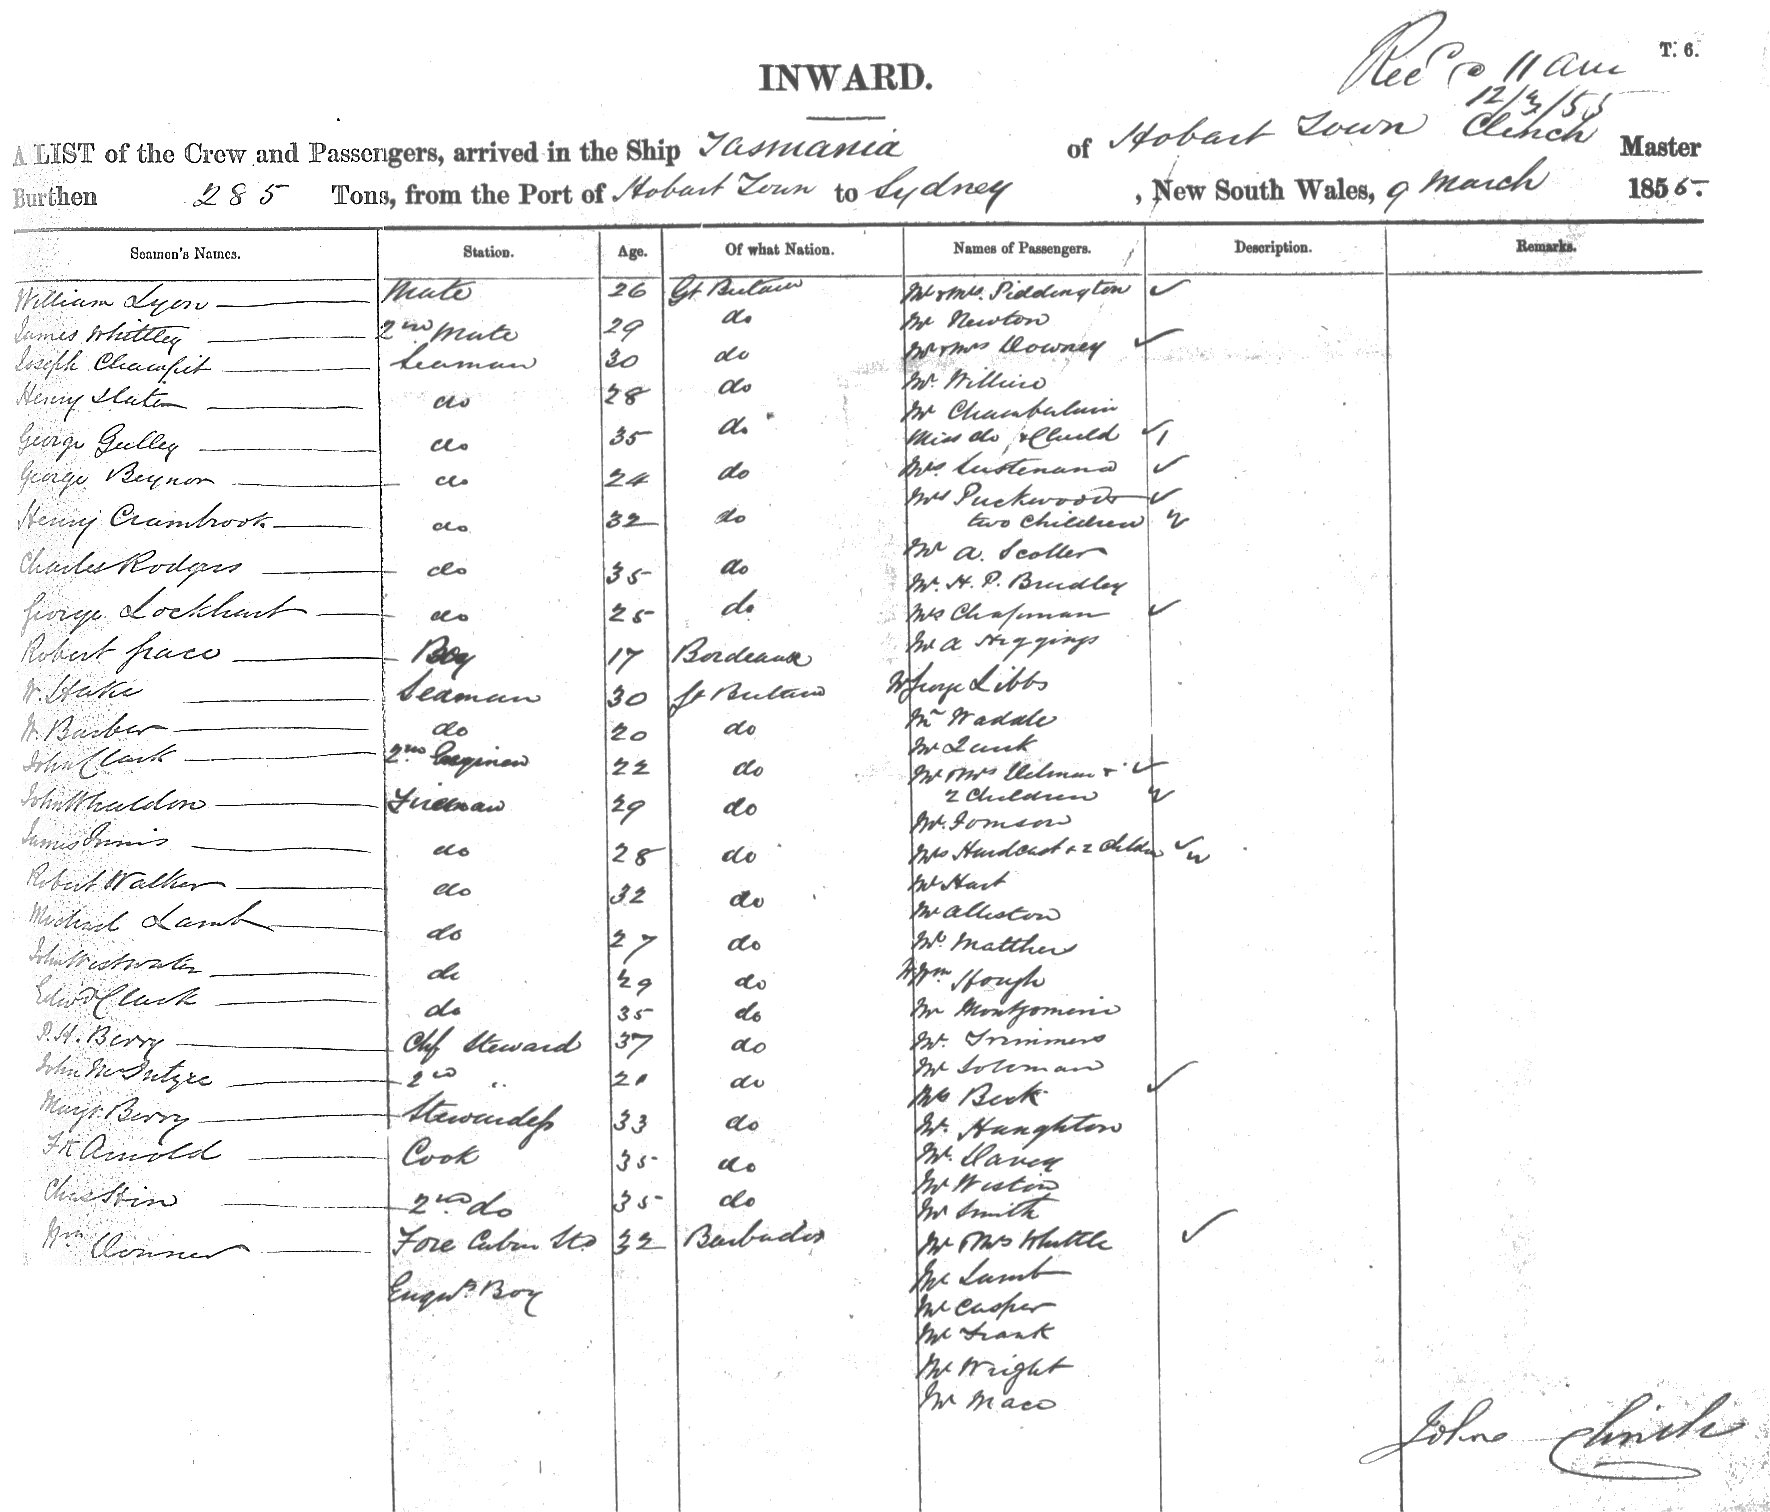 T. 6.
Recd @ 11 am
12/3/55
INWARD.
A LIST of the Crew and Passengers, arrived in the Ship Tasmania of Hobart Town Clinch Master
Burthen 285 Tons, from the Port of Hobart Town to Sydney, New South Wales, 9 March 1855.
Seamen's Names. Station. Age. Of what Nation. Names of Passengers. Description. Remarks.
William Lyon Mate 26 Gt Britain Mr & Mrs. Piddington ✓
James Whittley 2nd Mate 29 do Mr Newton
Joseph Seaman 30 do Mr & Mrs Downey ✓
Henry Slater do 28 do Mr.
George Gulley do 35 do Mr Chamberlain
Miss do & Child ✓ 1
George Beynon do 24 do Mrs ✓
Henry Crambrook do 32 do Mrs Puckwood ✓
two Children
Charles Rodgers do 35 do Mr A.
Mr. H. P. Bradley
George Lockhart do 25 do Mrs Chapman ✓
Robert Grace Boy 17 Bordeaux Mr A Higgings
W. Hake Seaman 30 Gt Britain George Libbs
W. Barber do 20 do Mr Waddle
John Clark 2nd Engineer 22 do Mr
Mr & Mrs & ✓
John Whealdon Fireman 29 do 2 Children
Mr. Tomson
James Innis do 28 do Mrs Hardcast & 2 Children ✓
Robert Walker do 32 do Mr Hart
Mr Alliston
Michael Lamb do 27 do Mr Matther
John Westwater do 29 do Wm Hough
Edwd Clark do 35 do Mr Montgomerie
P. H. Berry Chf Steward 37 do Mr. Trimmers
Mr Soloman
John McIntyre 2nd " 21 do Mrs Beck ✓
Margt. Berry Stewardess 33 do Mr. Haughton
Fk Arnold Cook 35 do Mr. Davey
Mr Weston
Chas Hin 2nd do 35 do Mr Smith
Wm Conner Fore Cabin Std 32 Barbados Mr & Mrs Whittle ✓
Mr Lamb
Engrs. Boy
Mr Casper
Mr Frank
Mr Wright
Mr Mace
John Clinch